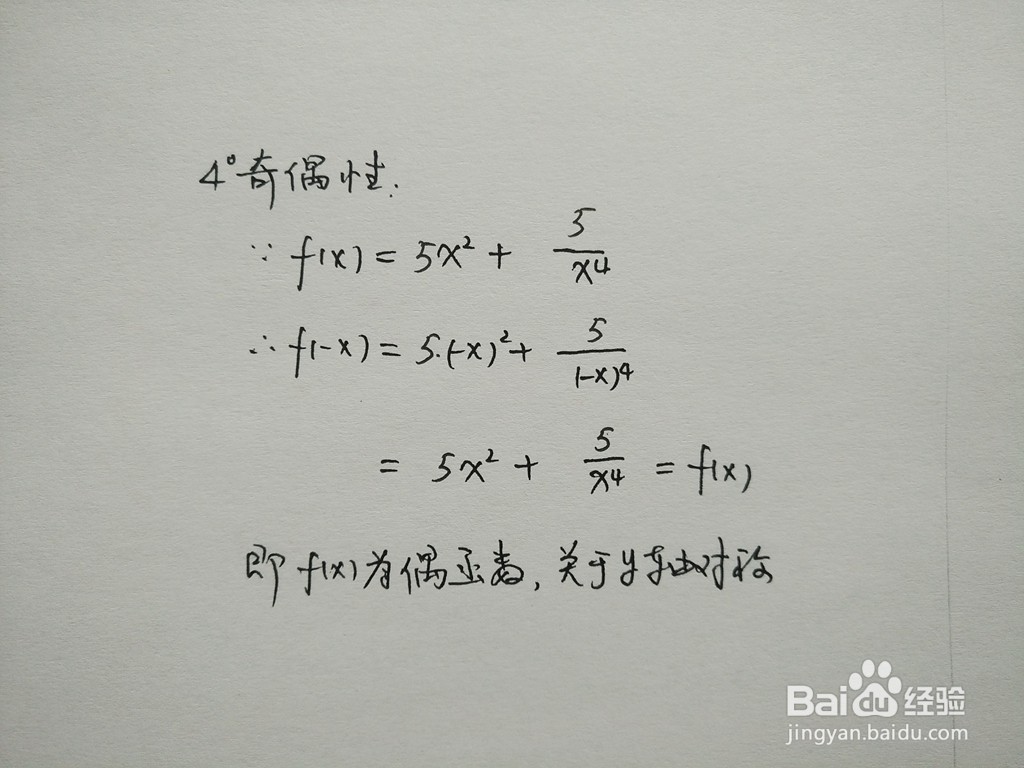 4°奇偶性.
∵ f(x) = 5x² + 5/x⁴
∴ f(-x) = 5·(-x)² + 5/(-x)⁴
= 5x² + 5/x⁴ = f(x)
即f(x)为偶函数,关于y轴对称
Baidu经验
jingyan.baidu.com